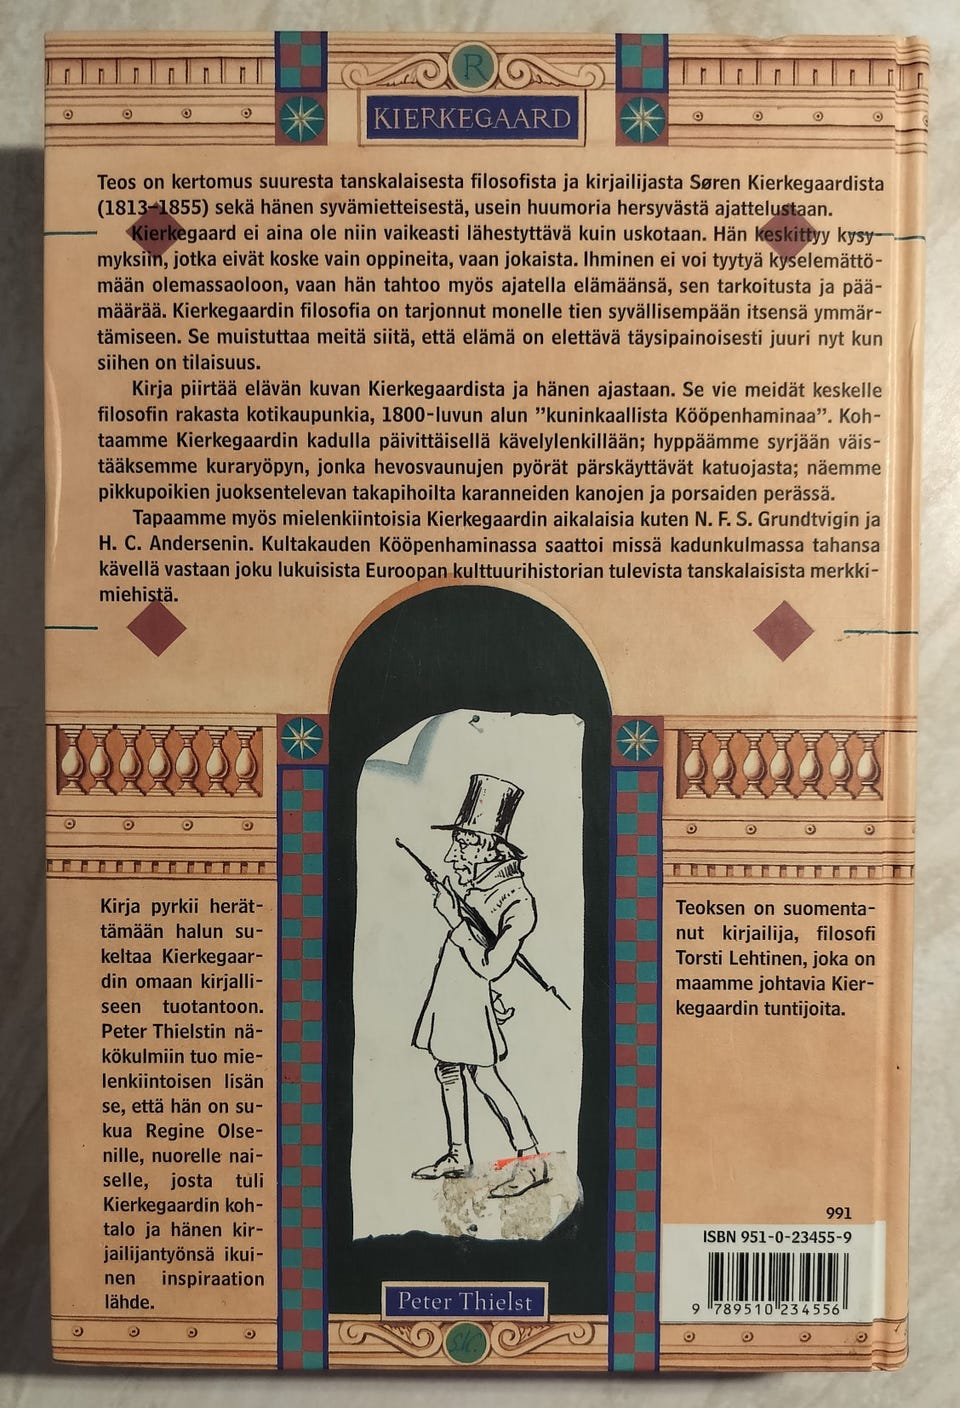 R
KIERKEGAARD
Teos on kertomus suuresta tanskalaisesta filosofista ja kirjailijasta Søren Kierkegaardista
(1813–1855) sekä hänen syvämietteisestä, usein huumoria hersyvästä ajattelustaan.
Kierkegaard ei aina ole niin vaikeasti lähestyttävä kuin uskotaan. Hän keskittyy kysy-
myksiin, jotka eivät koske vain oppineita, vaan jokaista. Ihminen ei voi tyytyä kyselemättö-
mään olemassaoloon, vaan hän tahtoo myös ajatella elämäänsä, sen tarkoitusta ja pää-
määrää. Kierkegaardin filosofia on tarjonnut monelle tien syvällisempään itsensä ymmär-
tämiseen. Se muistuttaa meitä siitä, että elämä on elettävä täysipainoisesti juuri nyt kun
siihen on tilaisuus.
Kirja piirtää elävän kuvan Kierkegaardista ja hänen ajastaan. Se vie meidät keskelle
filosofin rakasta kotikaupunkia, 1800-luvun alun ”kuninkaallista Kööpenhaminaa”. Koh-
taamme Kierkegaardin kadulla päivittäisellä kävelylenkillään; hyppäämme syrjään väis-
tääksemme kuraryöpyn, jonka hevosvaunujen pyörät pärskäyttävät katuojasta; näemme
pikkupoikien juoksentelevan takapihoilta karanneiden kanojen ja porsaiden perässä.
Tapaamme myös mielenkiintoisia Kierkegaardin aikalaisia kuten N. F. S. Grundtvigin ja
H. C. Andersenin. Kultakauden Kööpenhaminassa saattoi missä kadunkulmassa tahansa
kävellä vastaan joku lukuisista Euroopan kulttuurihistorian tulevista tanskalaisista merkki-
miehistä.
Kirja pyrkii herät-
tämään halun su-
keltaa Kierkegaar-
din omaan kirjalli-
seen tuotantoon.
Peter Thielstin nä-
kökulmiin tuo mie-
lenkiintoisen lisän
se, että hän on su-
kua Regine Olse-
nille, nuorelle nai-
selle, josta tuli
Kierkegaardin koh-
talo ja hänen kir-
jailijantyönsä ikui-
nen inspiraation
lähde.
Teoksen on suomenta-
nut kirjailija, filosofi
Torsti Lehtinen, joka on
maamme johtavia Kier-
kegaardin tuntijoita.
991
ISBN 951-0-23455-9
9 789510 234556
Peter Thielst
S.K.